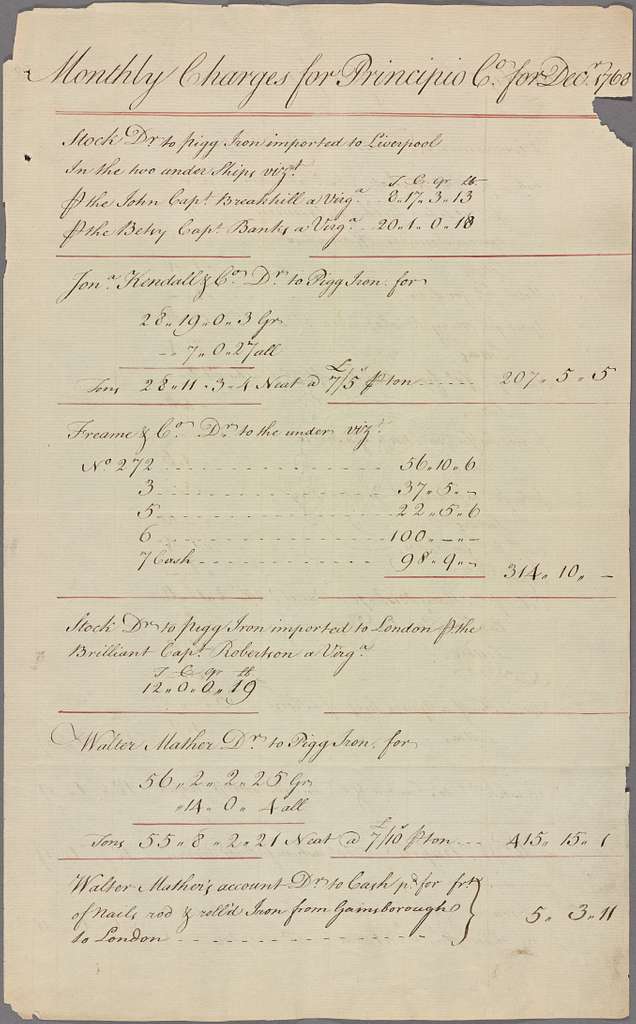 Monthly Charges for Principio Co. for Decr. 1768
Stock Dr to pigg Iron imported to Liverpool
In the two under Ships vizt
T C qr lb
⅌ the John Capt. Breakhill a Virga. 8,, 17,, 3,, 13
⅌ the Betsy Capt. Banks a Virga. 20,, 1,, 0,, 18
Jona. Kendall & Co. Dr. to Pigg Iron for
28,, 19,, 0,, 3 Gr
-- 7,, 0,, 27 all
Tons 28,, 11,, 3,, 4 Neat a £7/5s ⅌ ton ----- 207,, 5,, 5
Freame & Co. Dr. to the under vizt.
No. 272 . . . . . . . . . . . . 56,, 10,, 6
3 . . . . . . . . . . . . 37,, 5,, -
5 . . . . . . . . . . . . 22,, 5,, 6
6 . . . . . . . . . . . . 100,, -,, -
7 Cash . . . . . . . . . . 98,, 9,, - 314,, 10,, -
Stock Dr to pigg Iron imported to London ⅌ the
Brilliant Capt. Robertson a Virga.
T C qr lb
12,, 0,, 0,, 19
Walter Mather Dr. to Pigg Iron for
56,, 2,, 2,, 25 Gr
,,14,, 0,, 4 all
Tons 55,, 8,, 2,, 21 Neat a £7/10s ⅌ ton --- 415,, 15,, 1
Walter Mather's account Dr to Cash pd for frt
of nails rod & roll'd Iron from Gainsborough
to London - - - - - - - - - - - 5,, 3,, 11